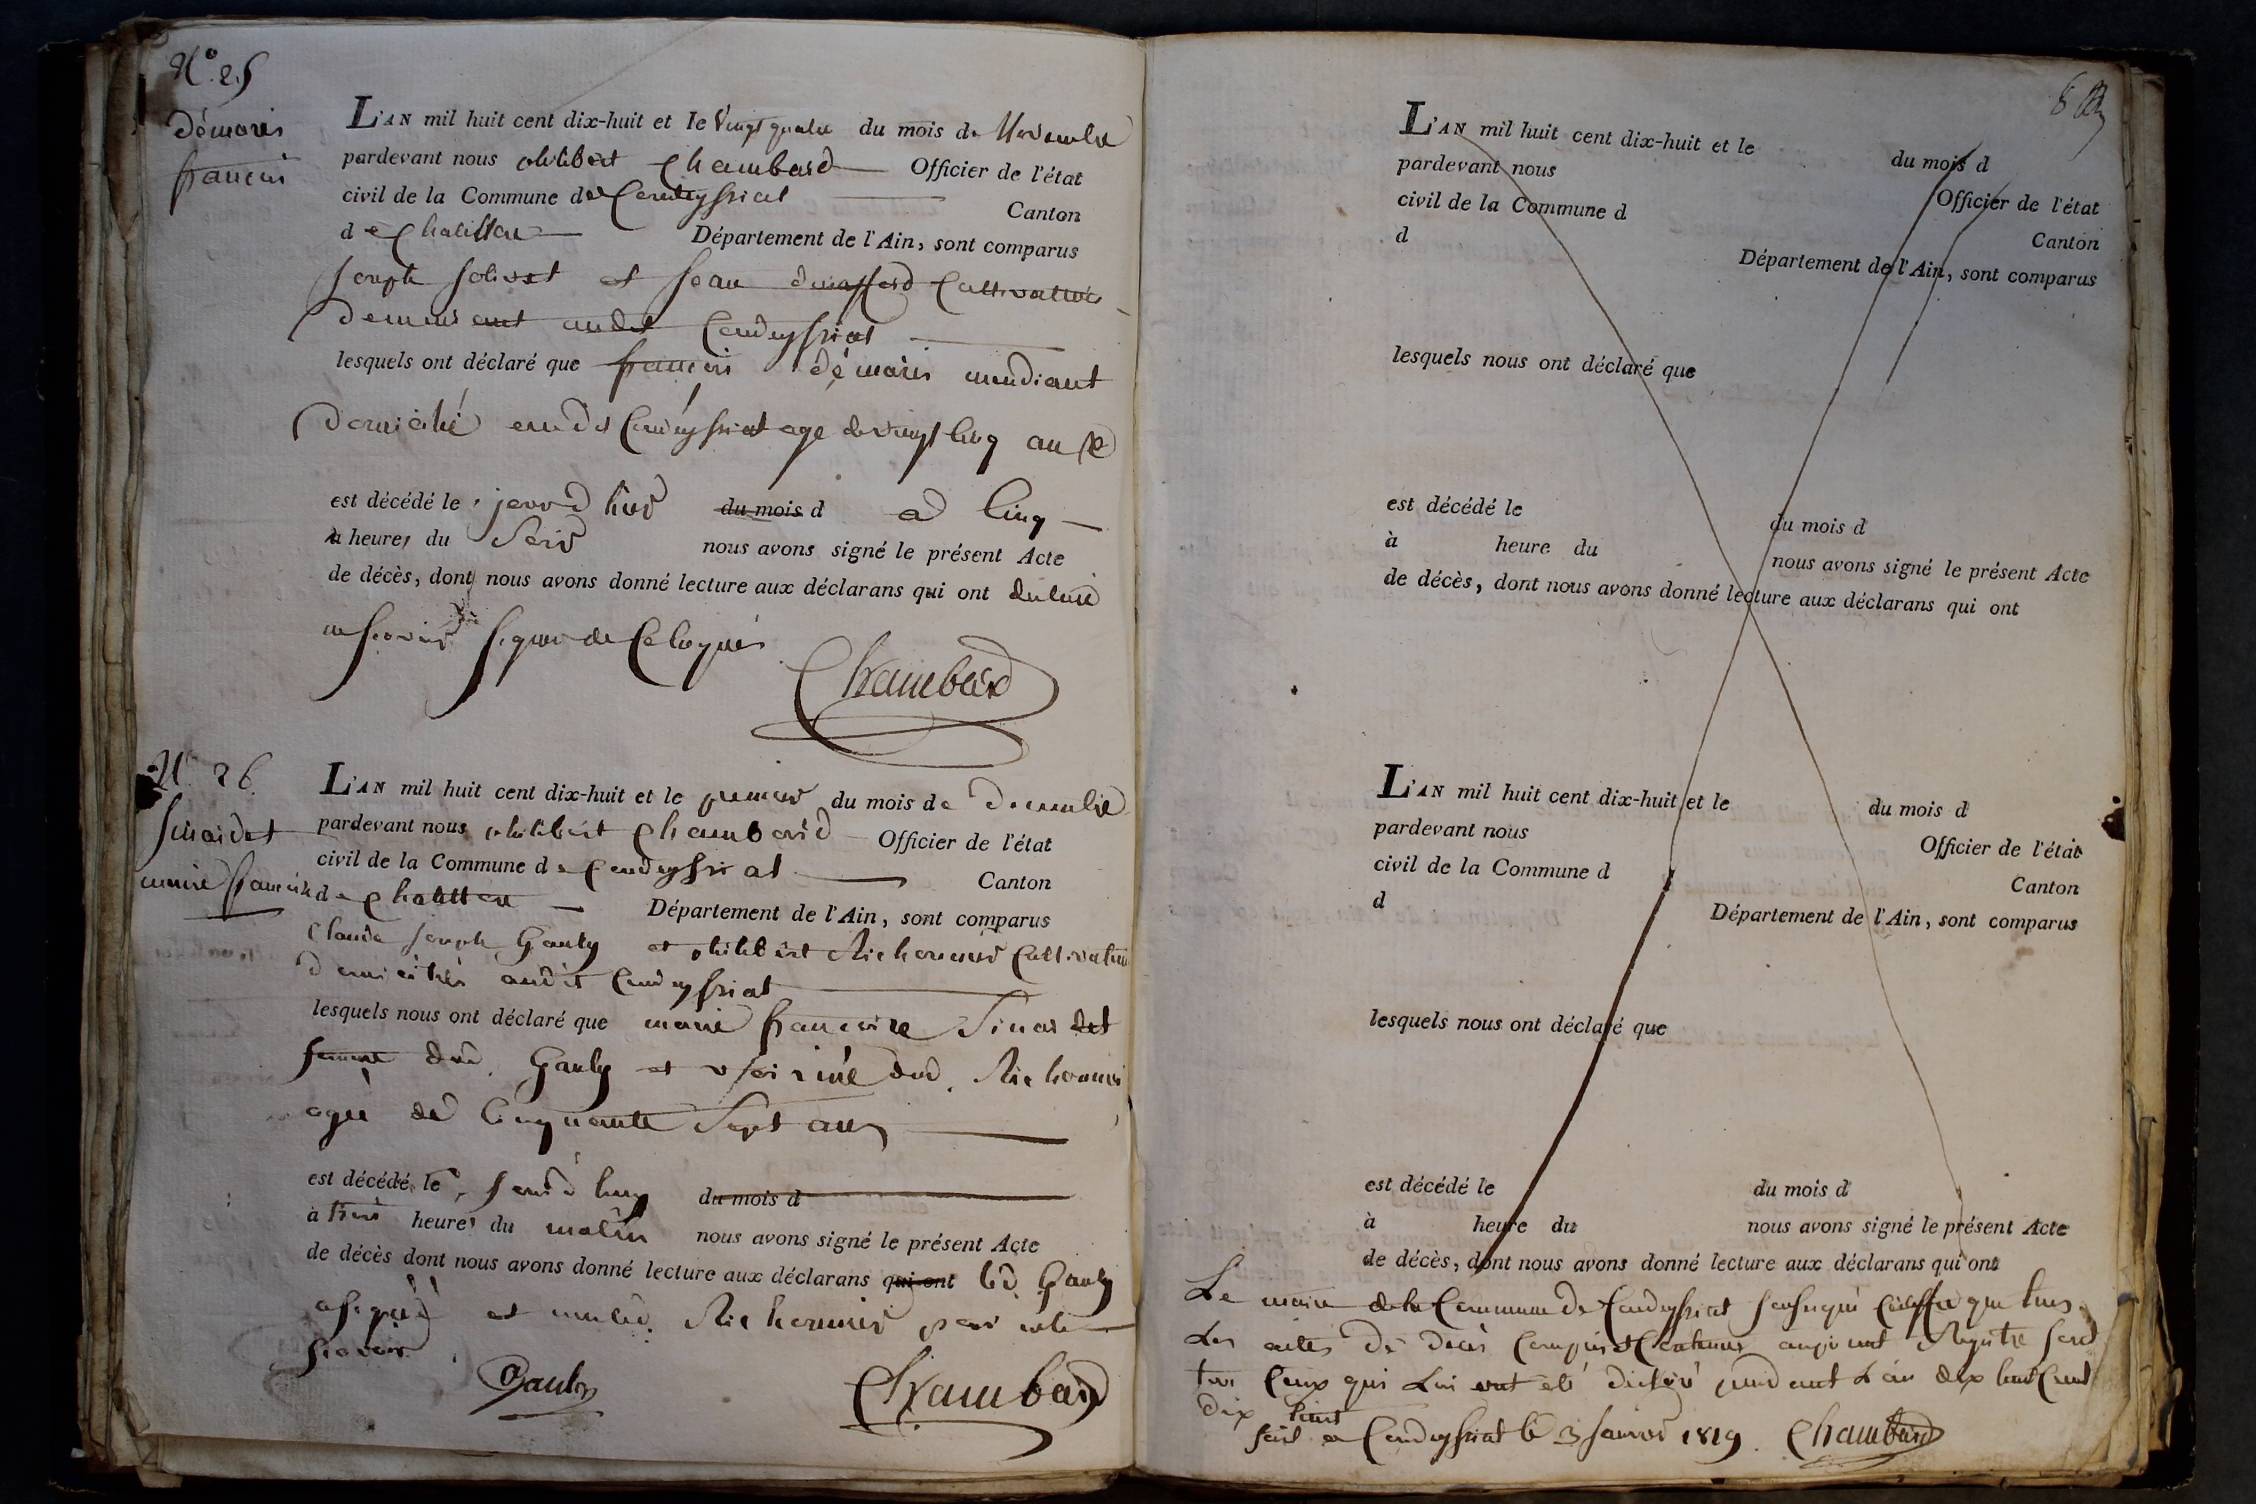 N° 25
démaris
françois
L'AN mil huit cent dix-huit et le vingt quatre du mois de Novembre
pardevant nous philibert Chambard Officier de l'état
civil de la Commune de Condeyssiat
Canton
de Chatillon Département de l'Ain, sont comparus
Joseph Solivet et Jean Cultivateurs
Demeurant audit Condeyssiat
lesquels ont déclaré que françois démaris mendiant
domicilié audit Condeyssiat agé de vingt cinq ans
est décédé le jourd hier du mois d a Cinq
à heures du Soir nous avons signé le présent Acte
de décès, dont nous avons donné lecture aux déclarans qui ont déclaré
ne scavoir signer de ce requis
Chambard
N° 26
Sinardet
marie françoise
L'AN mil huit cent dix-huit et le premier du mois de Decembre
pardevant nous philibert Chambard Officier de l'état
civil de la Commune de Condeyssiat
Canton
de Chatillon Département de l'Ain, sont comparus
Claude Joseph Gauly et philibert Richonnier Cultivateurs
domiciliés audit Condeyssiat
lesquels nous ont déclaré que marie françoise Sinardet
femme dud. Gauly et voisine dud. Richonnier
agée de Cinquante Sept ans
est décédé le jourd huy du mois d
à trois heures du matin nous avons signé le présent Acte
de décès dont nous avons donné lecture aux déclarans qui ont led. Gauly
a signé et non led. Richonnier pour ne le
scavoir.
Gauly
Chambard
8
L'AN mil huit cent dix-huit et le du mois d
pardevant nous Officier de l'état
civil de la Commune d Canton
d Département de l'Ain, sont comparus
lesquels nous ont déclaré que
est décédé le du mois d
à heure du nous avons signé le présent Acte
de décès, dont nous avons donné lecture aux déclarans qui ont
L'AN mil huit cent dix-huit et le du mois d
pardevant nous Officier de l'état
civil de la Commune d Canton
d Département de l'Ain, sont comparus
lesquels nous ont déclaré que
est décédé le du mois d
à heure du nous avons signé le présent Acte
de décès, dont nous avons donné lecture aux déclarans qui ont
Le maire de la Commune de Condeyssiat soussigné Certiffie que tous
Les actes de decès Compris et Contenus au present Registre sont
tous Ceux qui Lui ont été pendant L'an dix huit Cent
dix huit
fait a Condeyssiat le 3 Janvier 1819. Chambard